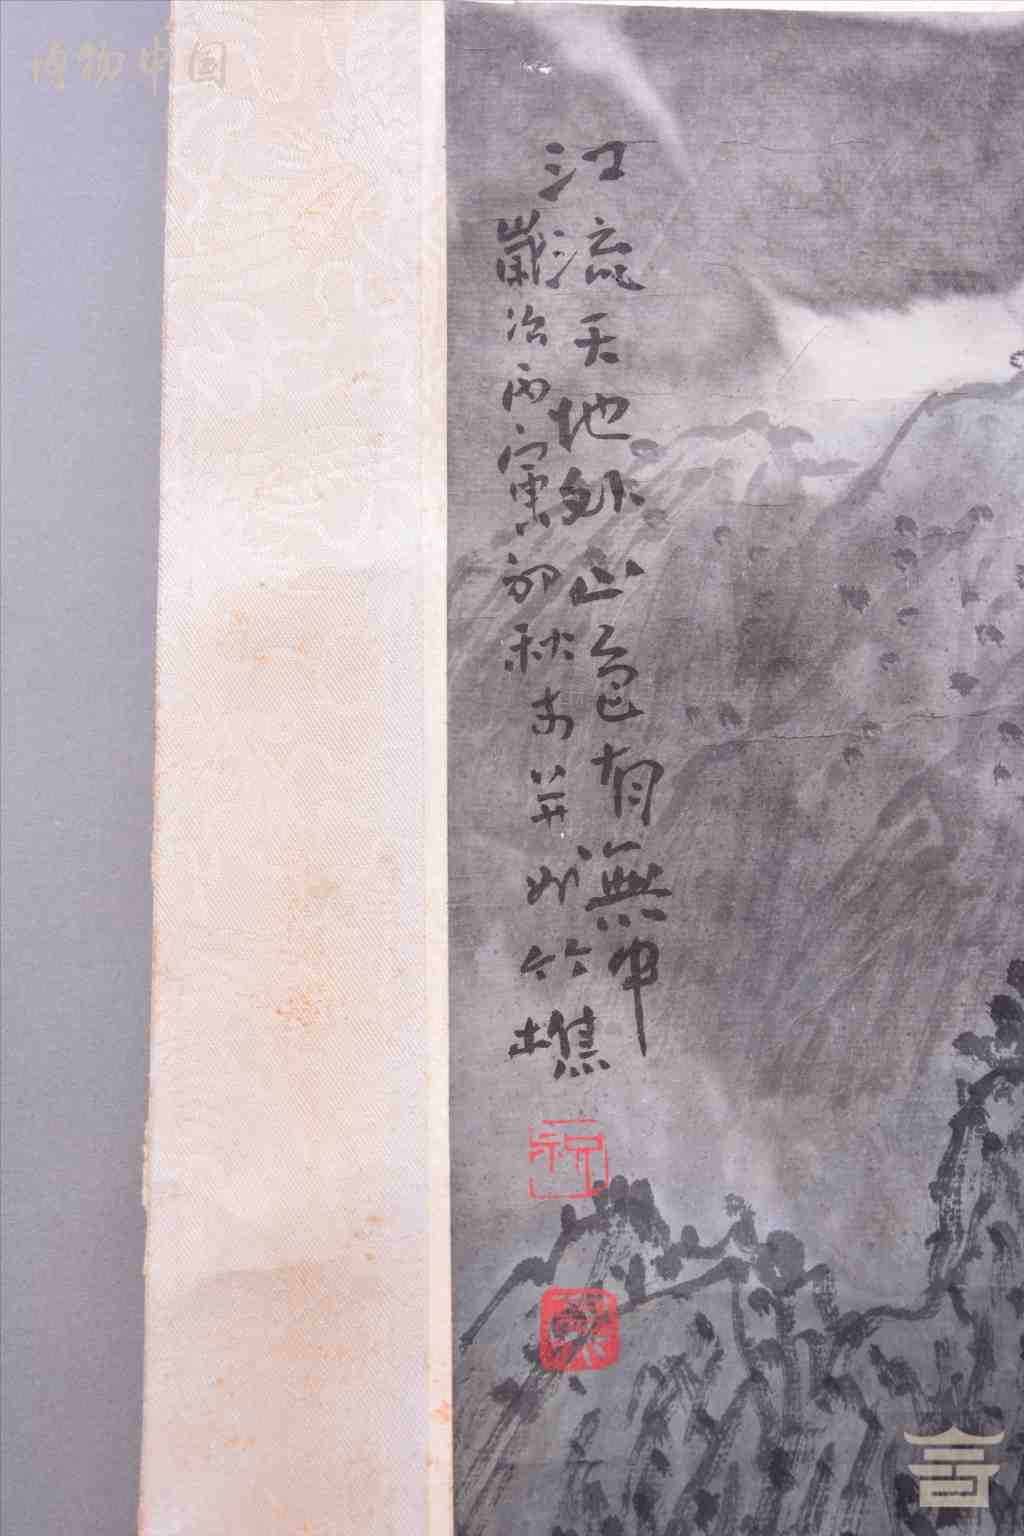 江流天地外山色有無中
歲次丙寅初秋於并州竹樵
祝
博物中国